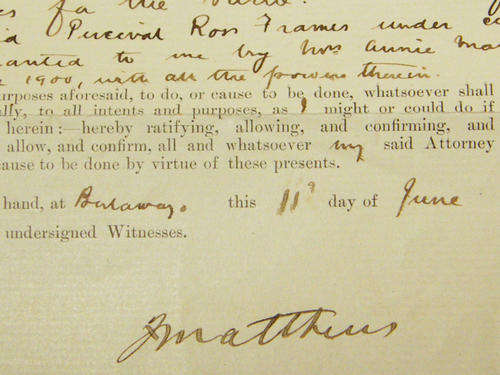 for the
Percival Ross Frames under
anted to me by Mrs Annie Ma
1900, with all the powers therein.
urposes aforesaid, to do, or cause to be done, whatsoever shall
ally, to all intents and purposes, as I might or could do if
herein:—hereby ratifying, allowing, and confirming, and
allow, and confirm, all and whatsoever my said Attorney
cause to be done by virtue of these presents.
hand, at Bulawayo this 11th day of June
undersigned Witnesses.
JMatthews